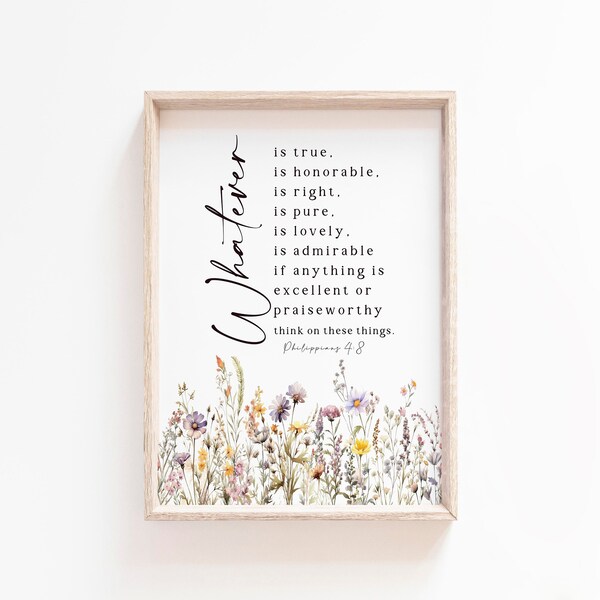 Whatever
is true,
is honorable,
is right,
is pure,
is lovely,
is admirable
if anything is
excellent or
praiseworthy
think on these things.
Philippians 4:8